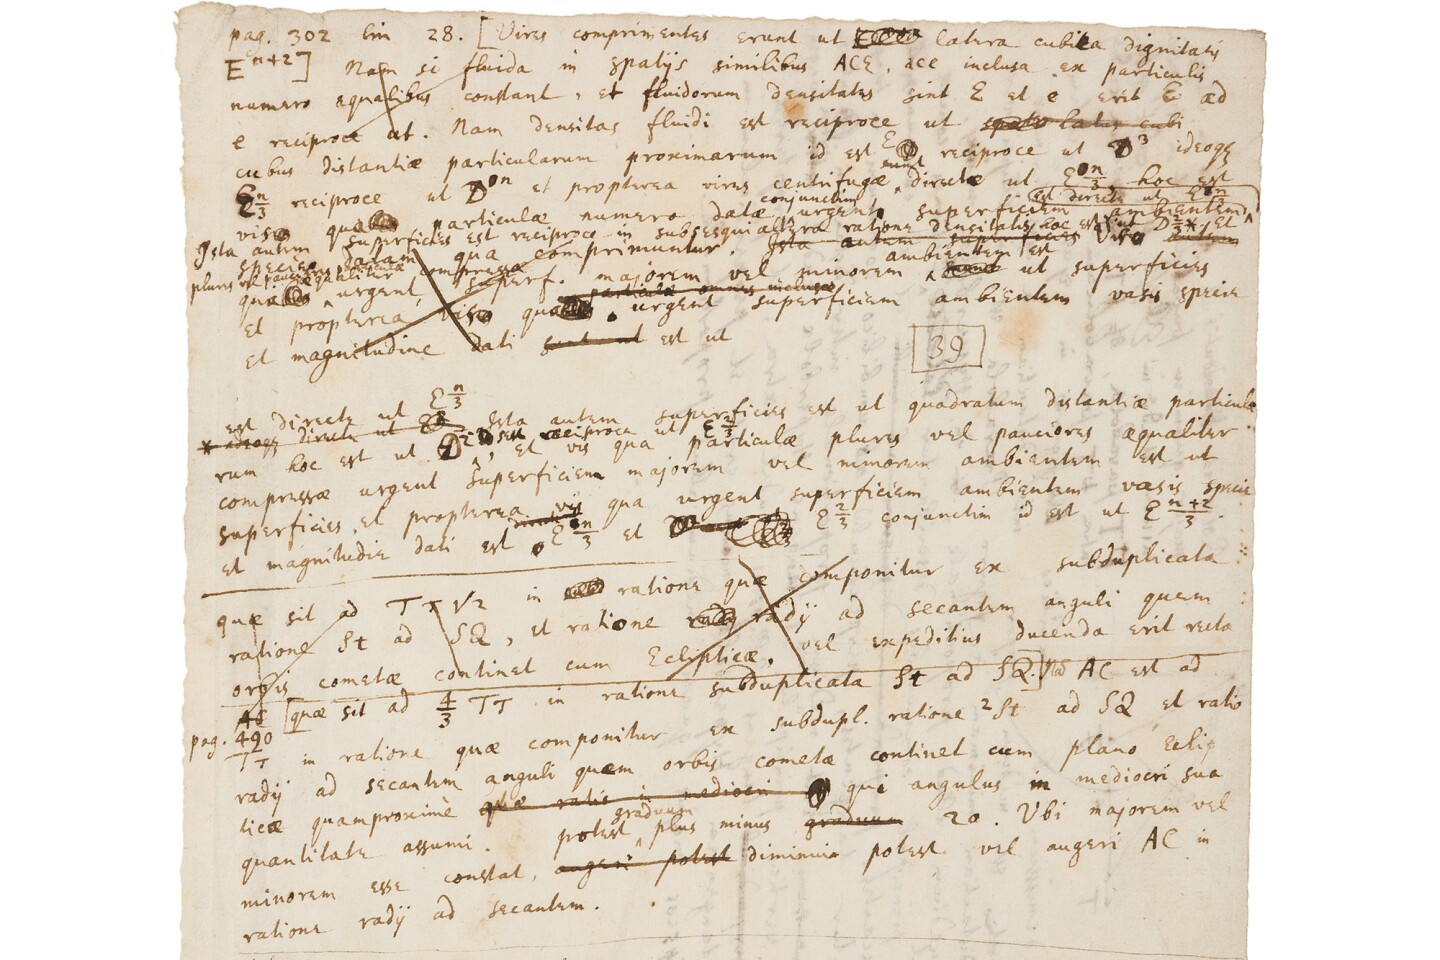 pag. 302 lin 28. [Vires comprimentes erunt ut latera cubica dignitatis
E^{n+2}] Nam si fluida in spatijs similibus ACE, ace inclusa ex particulis
numero æqualibus constant, et fluidorum densitates sint E et e erit E ad
e reciproce ut. Nam densitas fluidi est reciproce ut spatio latus cubi
cubus distantiæ particularum proximarum id est E reciproce ut D^3 ideoqꝫ
E^{n/3} reciproce ut D^n et propterea vires centrifugæ sunt directe ut E^{n/3}, hoc est
est directe ut E^{n/3}
vis qua particulæ numero datæ conjunctim urgent superficiem ambientem
Ista autem superficies est reciproce in subsesquialtera ratione densitatis hoc est ut
speciem datam qua comprimuntur. Ista autem superficies
plures vel pauciores æqualiter compressæ superf. majorem vel minorem ambientem est ut superficies
qua urgent particulæ omnes inclusæ
et propterea vis qua urgent superficiem ambientem vasis specie
et magnitudine dati est ut
39
est directe ut E^{n/3}
* adeoqꝫ directe ut Ista autem superficies est ut quadratum distantiæ particula
rum hoc est ut D^2 seu reciproce ut E^{2/3}, et vis qua particulæ plures vel pauciores æqualiter
compressæ urgent superficiem majorem vel minorem ambientem est ut
superficies, et propterea vis qua urgent superficiem ambientem vasis specie
et magnitudie dati est E^{n/3} et E^{2/3} conjunctim id est ut E^{n+2/3}.
quæ sit ad Tτ√2 in ratione quæ componitur ex subduplicata
ratione St ad SQ, et ratione radij ad secantem anguli quem
orbis cometæ continet cum Eclipticæ, vel expeditius ducenda erit recta
AC [quæ sit ad 4/3 Tτ in ratione subduplicata St ad SQ.] Nā AC est ad
pag. 490
Tτ in ratione quæ componitur ex subdupl. ratione 2St ad SQ et ratio
radij ad secantem anguli quem orbis cometæ continet cum plano Eclip
ticæ quamproximè quæ ratio in mediocri qui angulus in mediocri sua
quantitate assumi potest graduum plus minus graduum 20. Ubi majorem vel
minorem esse constat, augeri potest diminui potest vel augeri AC in
ratione radij ad secantem.